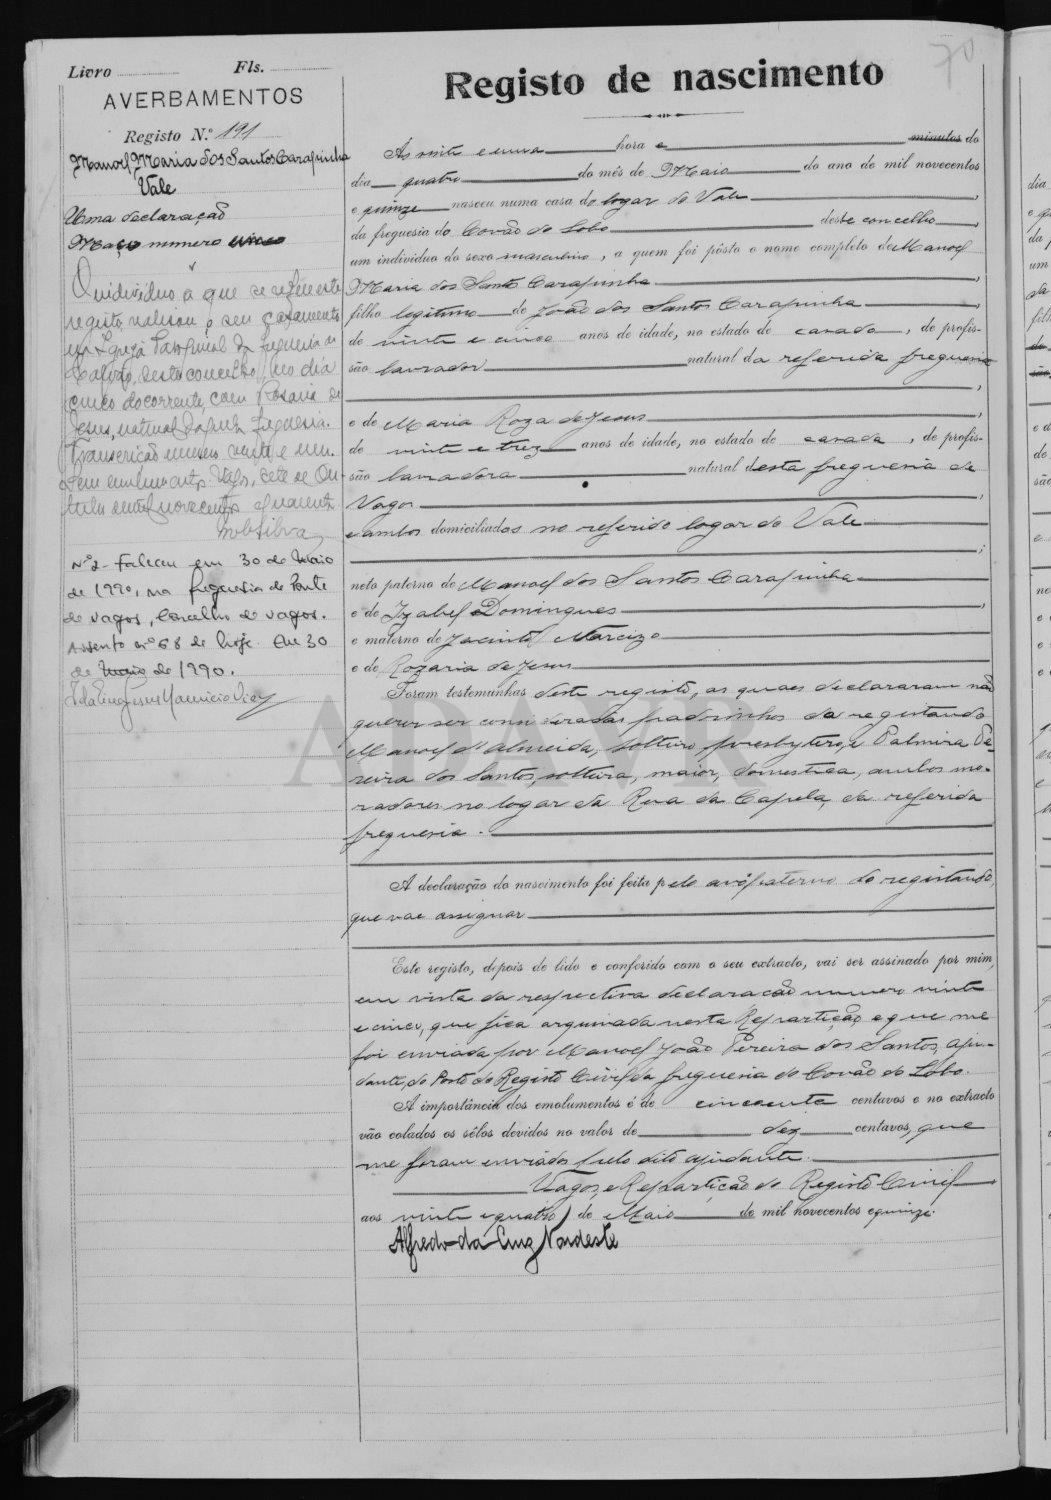 70
Livro Fls.
AVERBAMENTOS
Registo N.º 191
Manoel Maria dos Santos Carapinha
Vale
Uma declaração
Maço numero cinco
O individuo a que se refere este
registo realisou o seu casamento
na Igreja Paroquial da freguesia de
deste concelho, no dia
cinco do corrente, com Rosaria de
Jesus, natural daquela freguesia.
Transcrição numero vinte e um.
Sem emolumentos. Vagos, sete de Ou-
tubro de mil novecentos e quarenta
Nº 2 - Faleceu em 30 de Maio
de 1990, na freguesia de Ponte
de Vagos, Concelho de Vagos.
Assento nº 68 de hoje. Em 30
de Maio de 1990.
Registo de nascimento
Ás vinte e uma hora e minutos do
dia quatro do mês de Maio do ano de mil novecentos
e quinze nasceu numa casa do logar do Vale,
da freguesia do Covão do Lobo deste concelho,
um individuo do sexo masculino, a quem foi pôsto o nome completo de Manoel
Maria dos Santos Carapinha,
filho legitimo de João dos Santos Carapinha,
de vinte e cinco anos de idade, no estado de casado, de profis-
são lavrador natural da referida freguesia
,
e de Maria Roza de Jesus,
de vinte e trez anos de idade, no estado de casada, de profis-
são lavradora natural desta freguesia de
Vagos,
e ambos domiciliados no referido logar do Vale
;
neto paterno de Manoel dos Santos Carapinha
e de Izabel Domingues,
e materno de Jacinto Marcizo
e de Rozaria de Jesus
Foram testemunhas deste registo, as quaes declararam não
querer ser consideradas padrinhos do registando
Manoel d'Almeida, solteiro, presbytero, e Palmira Pe-
reira dos Santos, solteira, maior, domestica, ambos mo-
radores no logar da Rua da Capela, da referida
freguesia.
A declaração do nascimento foi feita pelo avô paterno do registando,
que vae assignar
Este registo, depois de lido e conferido com o seu extracto, vai ser assinado por mim,
em vista da respectiva declaração numero vinte
e cinco, que fica arquivada nesta Repartição e que me
foi enviada por Manoel João Pereira dos Santos, aju-
dante, do Posto do Registo Civil da freguesia do Covão do Lobo.
A importância dos emolumentos é de cincoenta centavos e no extracto
vão colados os sêlos devidos no valor de dez centavos, que
me foram enviados pelo dito ajudante.
Vagos, e Repartição do Registo Civil
aos vinte e quatro de Maio de mil novecentos e quinze.
Alfredo da Cruz Nordeste
ADAVR